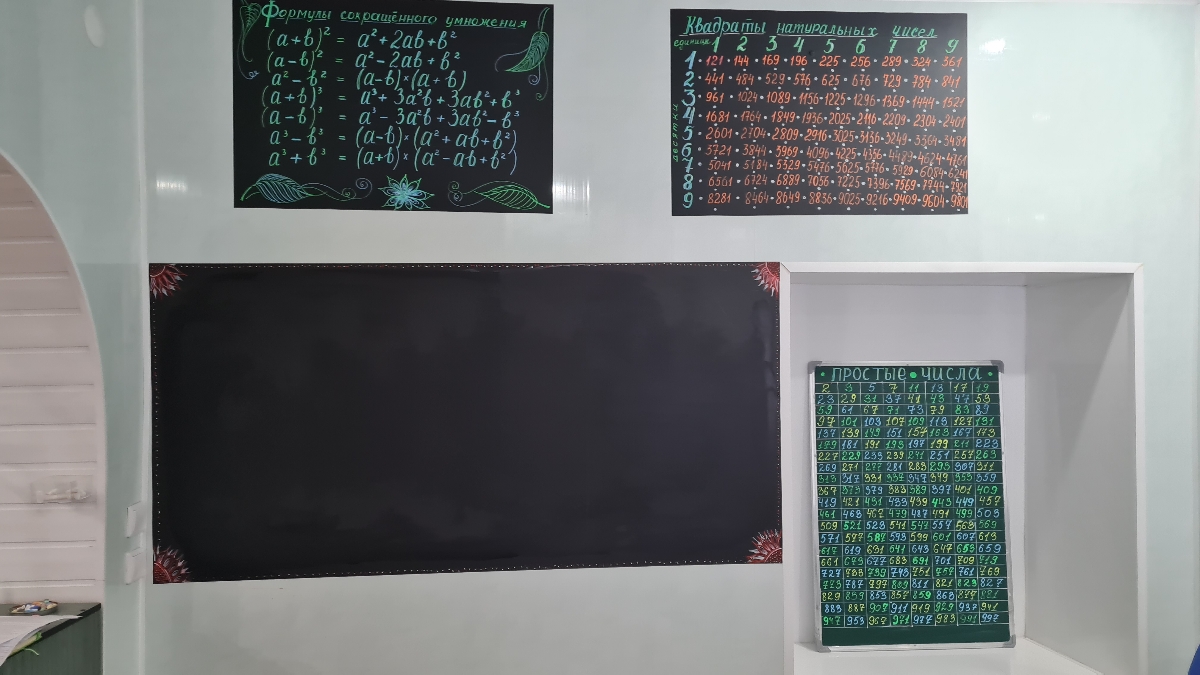 Формулы сокращённого умножения
(a+b)² = a²+2ab+b²
(a-b)² = a²-2ab+b²
a²-b² = (a-b)×(a+b)
(a+b)³ = a³+3a²b+3ab²+b³
(a-b)³ = a³-3a²b+3ab²-b³
a³-b³ = (a-b)×(a²+ab+b²)
a³+b³ = (a+b)×(a²-ab+b²)
Квадраты натуральных чисел
единицы 1 2 3 4 5 6 7 8 9
десятки
1 • 121 • 144 • 169 • 196 • 225 • 256 • 289 • 324 • 361
2 • 441 • 484 • 529 • 576 • 625 • 676 • 729 • 784 • 841
3 • 961 • 1024 • 1089 • 1156 • 1225 • 1296 • 1369 • 1444 • 1521
4 • 1681 • 1764 • 1849 • 1936 • 2025 • 2116 • 2209 • 2304 • 2401
5 • 2601 • 2704 • 2809 • 2916 • 3025 • 3136 • 3249 • 3364 • 3481
6 • 3721 • 3844 • 3969 • 4096 • 4225 • 4356 • 4489 • 4624 • 4761
7 • 5041 • 5184 • 5329 • 5476 • 5625 • 5776 • 5929 • 6084 • 6241
8 • 6561 • 6724 • 6889 • 7056 • 7225 • 7396 • 7569 • 7744 • 7921
9 • 8281 • 8464 • 8649 • 8836 • 9025 • 9216 • 9409 • 9604 • 9801
• ПРОСТЫЕ • ЧИСЛА •
2 3 5 7 11 13 17 19
23 29 31 37 41 43 47 53
59 61 67 71 73 79 83 89
97 101 103 107 109 113 127 131
137 139 149 151 157 163 167 173
179 181 191 193 197 199 211 223
227 229 233 239 241 251 257 263
269 271 277 281 283 293 307 311
313 317 331 337 347 349 353 359
367 373 379 383 389 397 401 409
419 421 431 433 439 443 449 457
461 463 467 479 487 491 499 503
509 521 523 541 547 557 563 569
571 577 587 593 599 601 607 613
617 619 631 641 643 647 653 659
661 673 677 683 691 701 709 719
727 733 739 743 751 757 761 769
773 787 797 809 811 821 823 827
829 839 853 857 859 863 877 881
883 887 907 911 919 929 937 941
947 953 967 971 977 983 991 997